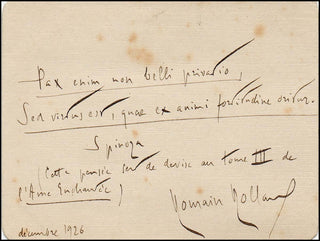 Pax enim non belli privatio,
Sed virtus est, quae ex animi fortitudine oritur.
Spinoza
(Cette pensée sert de devise au tome III de
l'Ame Enchantée)
Romain Rolland
décembre 1926